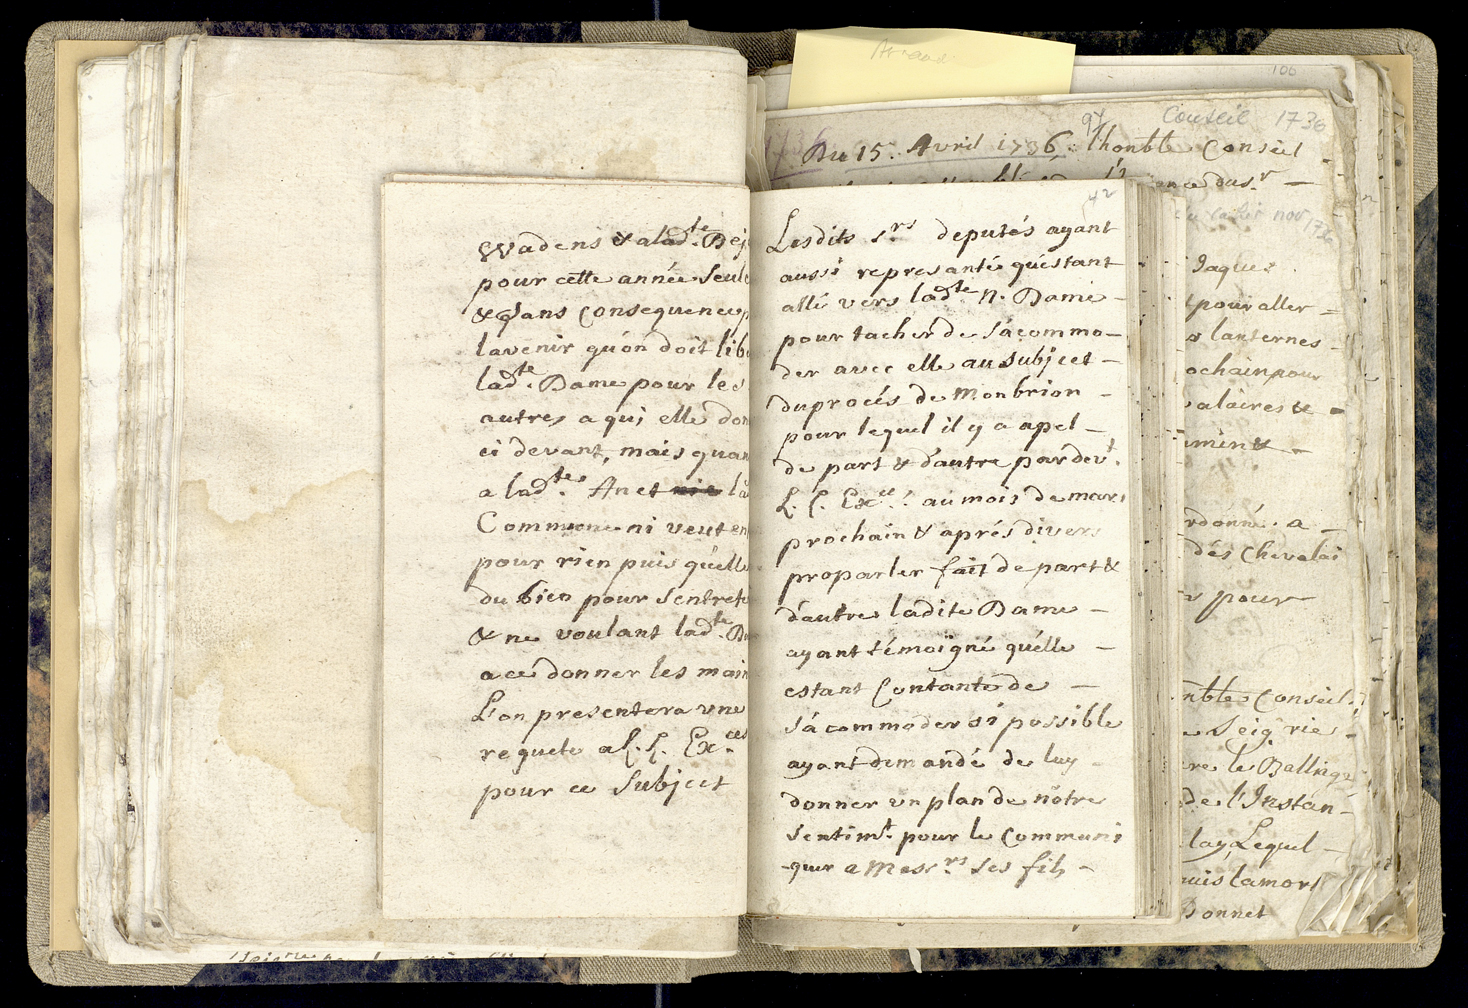 Wadens & a lad.te Dej
pour cette année seule
& sans consequence p
lavenir qu'on doit libe
lad.te Dame pour les
autres a qui elle don
ci devant, mais quan
a lad.te An et la
Commune ni veut en
pour rien puis qu'elle
du bien pour sentrete
& ne voulant lad.te Da
a ce donner les main
L'on presentera une
requete a L. L. Ex.ces
pour ce subject
42
Lesdits s.rs deputés ayant
aussi representé qu'estant
allé vers lad.te n. Dame
pour tacher de s'acommo-
der avec elle au subject
du procés de Monbrion
pour lequel il y a apel
de part & d'autre par dev.t
L. L. Ex.ces au mois de mars
prochain & aprés divers
proparler fait de part &
d'autre ladite Dame
ayant témoigné qu'elle
estant Contante de
s'acommoder si possible
ayant demandé de luy
donner un plan de notre
sentim.t pour le Communi
-quer a Mess.rs ses fils
97
Conseil 1736
106
Du 15. Avril 1736. l'honble Conseil
ence du s.r
nov 1736
Jaques
pour aller
lanternes
ochain pour
alaires &
rdonné. a
dés Chevalai
pour
nble Conseil
Seig.rie
re le Ballings
de l'Instan
lay Lequel
uis la mort
Bonnet